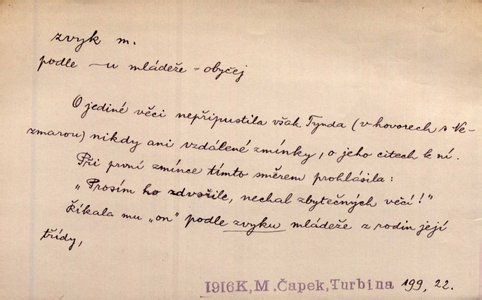 zvyk m.
podle –u mládeže - obyčej
O jediné věci nepřipustila však Tynda (v hovorech s Ne-
zmarou) nikdy ani vzdálené zmínky, o jeho citech k ní.
Při první zmínce tímto směrem prohlásila:
„Prosím ho zdvořile, nechal zbytečných věcí!"
Říkala mu „on" podle zvyku mládeže z rodin její
třídy,
1916K,M.Čapek,Turbina 199, 22.